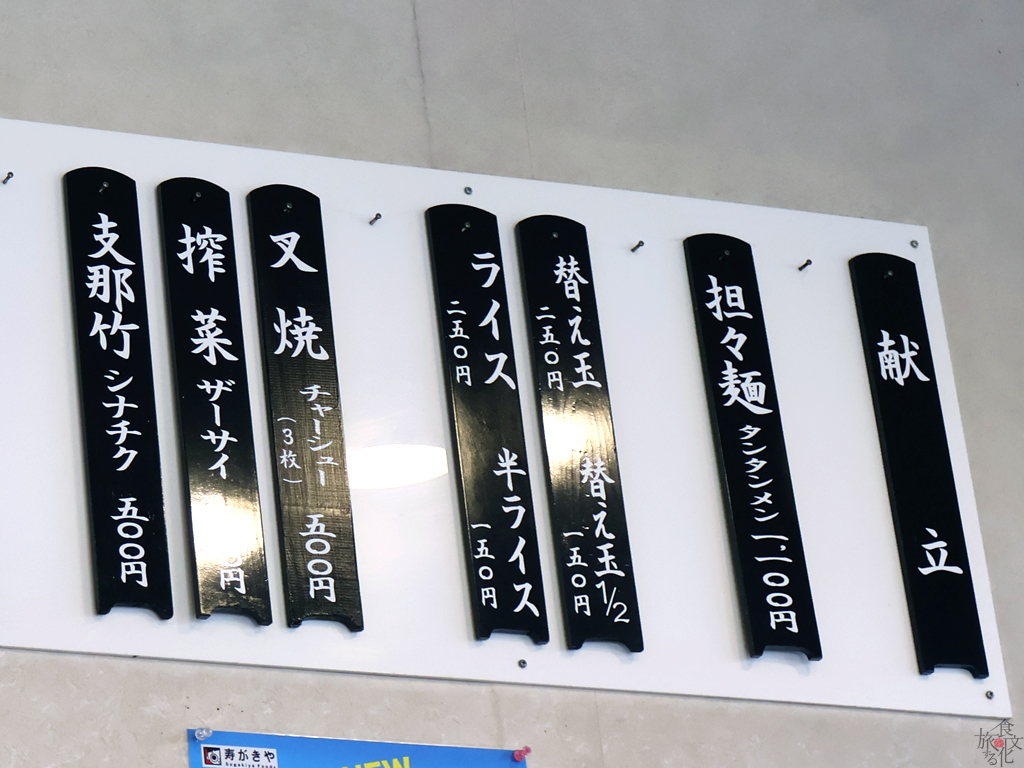 献立
担々麺 タンタンメン 一、一〇〇円
替え玉 二五〇円
替え玉1/2 一五〇円
ライス 二五〇円
半ライス 一五〇円
叉焼 チャーシュー (3枚) 五〇〇円
搾菜 ザーサイ 円
支那竹 シナチク 五〇〇円
寿がきや
Sugakiya Foods
NEW
食文化
旅する